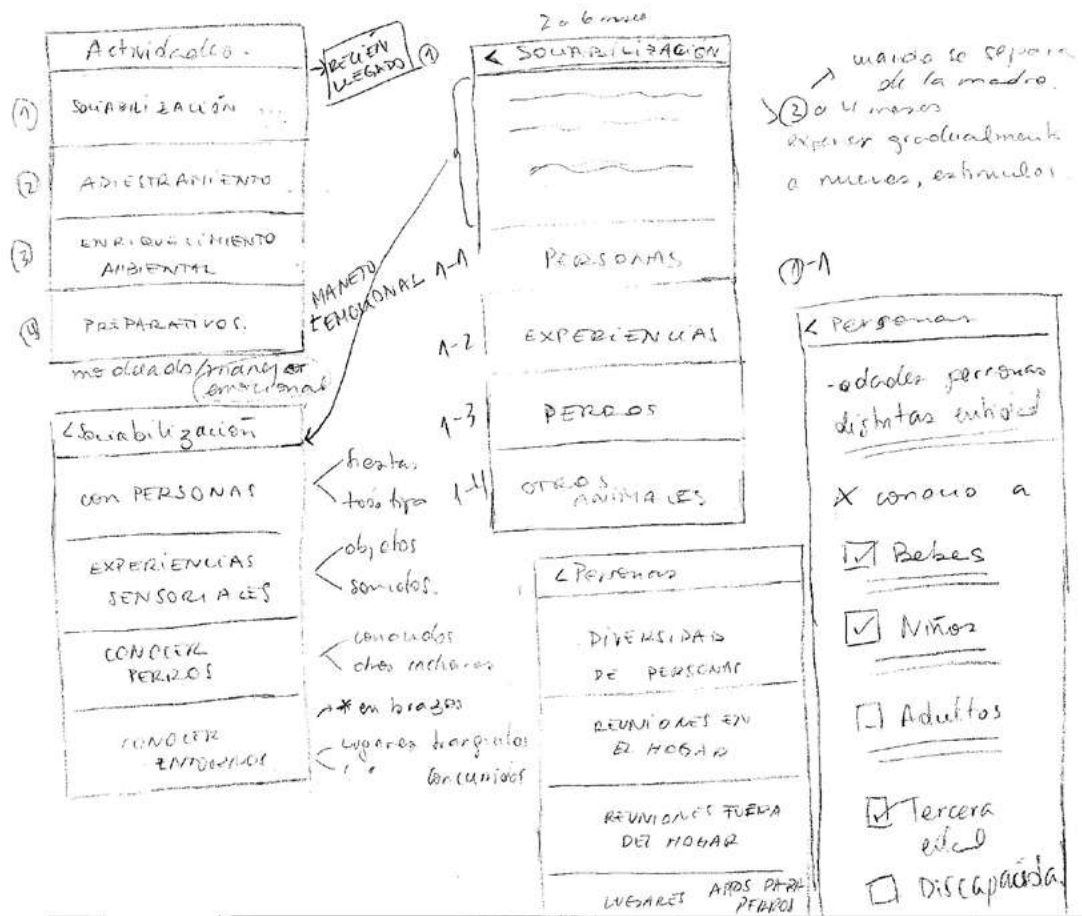 Actividades.
SOCIABILIZACIÓN ...
ADIESTRAMIENTO
ENRIQUECIMIENTO
AMBIENTAL
PREPARATIVOS.
①
②
③
④
→ RECIÉN
LLEGADO ①
MANEJO
EMOCIONAL
modelado/manejo
emocional
< Sociabilización
con PERSONAS
fiestas
todo tipo
EXPERIENCIAS
SENSORIALES
objetos
sonidos.
CONOCER
PERROS
conocidos
otros
CONOCER
ENTORNOS
* en brazos
lugares tranquilos
" " concurridos
2 a 6 meses
< SOCIABILIZACIÓN
1-1 PERSONAS
1-2 EXPERIENCIAS
1-3 PERROS
1-4 OTROS
ANIMALES
cuando se separa
de la madre.
③ a 4 meses
exponer gradualmente
a nuevos, estimulos.
< Personas
DIVERSIDAD
DE PERSONAS
REUNIONES EN
EL HOGAR
REUNIONES FUERA
DEL HOGAR
LUGARES APTOS PARA
PERROS
①-1
< Personas
-edades personas
distintas
X conocio a
☑ Bebes
☑ Niños
☐ Adultos
☑ Tercera
edad
☐ Discapacida.